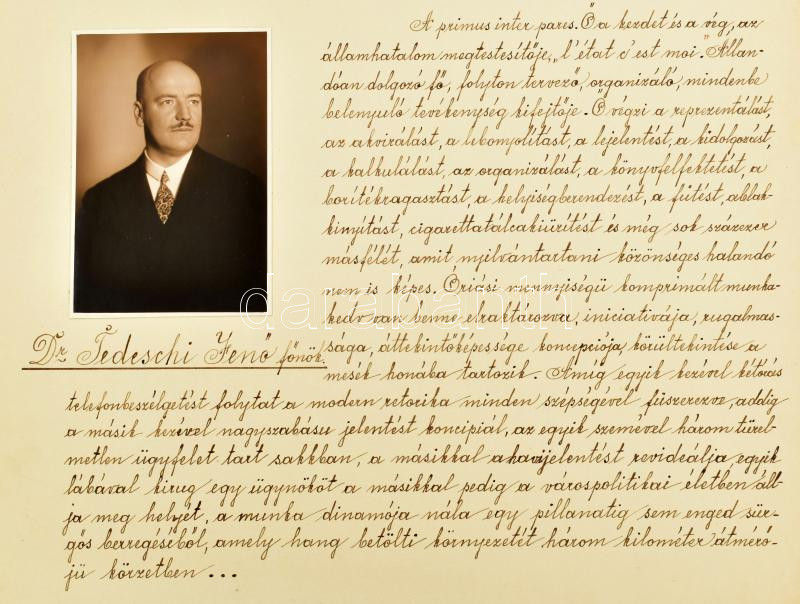 A primus inter pares. Ő a kezdet és a vég, az
államhatalom megtestesítője, „l'état c'est moi." Állan-
dóan dolgozó fő, folyton tervező, organizáló, mindenbe
belenyuló tevékenység kifejtője. Ő végzi a reprezentálást,
az akvirálást, a lebonyolítást, a lejelentést, a kidolgozást,
a kalkulálást, az organizálást, a könyvfelfektetést, a
borítékragasztást, a helyiségberendezést, a fűtést, ablak-
kinyítást, cigarettatálcakiürítést és még sok százezer
másfélét, amit nyilvántartani közönséges halandó
nem is képes. Óriási mennyiségű komprimált munka-
kedv van benne elraktározva, iniciativája, rugalmas-
sága, áttekintőképessége koncepciója, körültekintése a
mesék honába tartozik. Amíg egyik kezével kétórás
telefonbeszélgetést folytat a modern retorika minden szépségével fűszerezve, addig
a másik kezével nagyszabásu jelentést koncipiál, az egyik szemével három türel-
metlen ügyfelet tart sakkban, a másikkal a havijelentést revideálja, egyik
lábával kirug egy ügynököt a másikkal pedig a várospolitikai életben áll-
ja meg helyét, a munka dinamója nála egy pillanatig sem enged sür-
gős berregéséből, amely hang betölti környezetét három kilométer átmérő-
jü körzetben...
Dr. Tedeschi Jenő főnök
darabanth